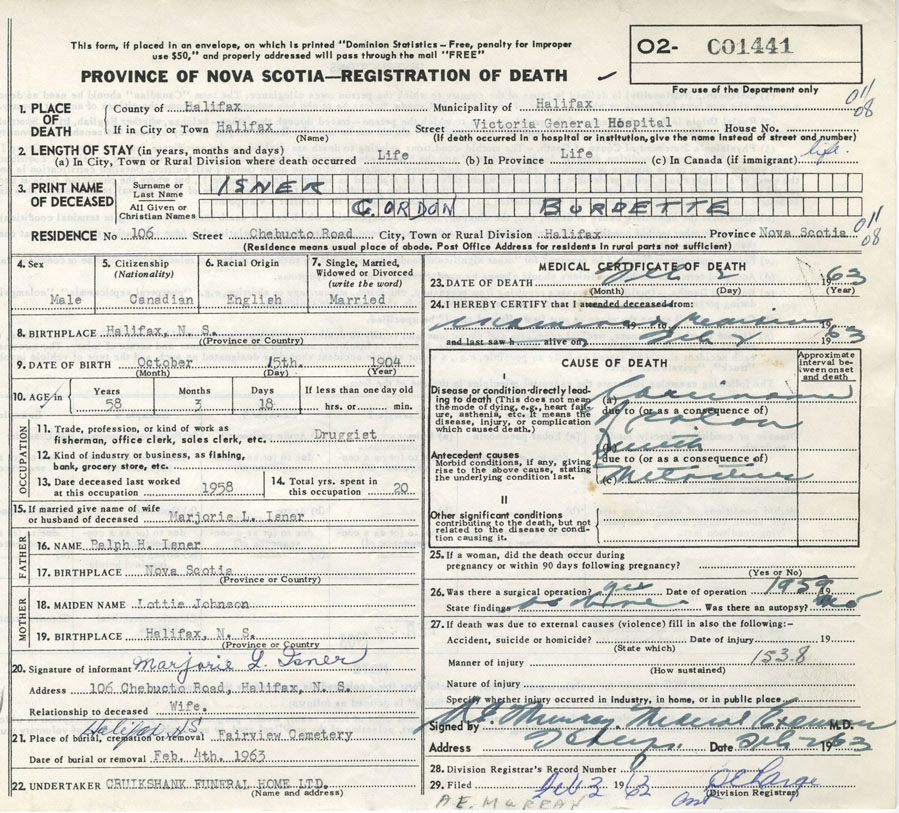 This form, if placed in an envelope, on which is printed "Dominion Statistics – Free, penalty for improper
use $50," and properly addressed will pass through the mail "FREE"
PROVINCE OF NOVA SCOTIA—REGISTRATION OF DEATH
O2- C01441
For use of the Department only
1. PLACE OF DEATH County of Halifax Municipality of Halifax 011/08
If in City or Town Halifax Street Victoria General Hospital House No.
(Name) (If death occurred in a hospital or institution, give the name instead of street and number)
2. LENGTH OF STAY (in years, months and days)
(a) In City, Town or Rural Division where death occurred Life (b) In Province Life (c) In Canada (if immigrant) life.
3. PRINT NAME OF DECEASED Surname or Last Name ISNER
All Given or Christian Names GORDON BURDETTE
RESIDENCE No 106 Street Chebucto Road City, Town or Rural Division Halifax Province Nova Scotia 011/08
(Residence means usual place of abode. Post Office Address for residents in rural parts not sufficient)
4. Sex Male
5. Citizenship (Nationality) Canadian
6. Racial Origin English
7. Single, Married, Widowed or Divorced (write the word) Married
8. BIRTHPLACE Halifax, N. S.
(Province or Country)
9. DATE OF BIRTH October 15th. 1904
(Month) (Day) (Year)
10. AGE in Years 58 Months 3 Days 18 If less than one day old hrs. or min.
OCCUPATION
11. Trade, profession, or kind of work as
fisherman, office clerk, sales clerk, etc. Druggist
12. Kind of industry or business, as fishing,
bank, grocery store, etc.
13. Date deceased last worked at this occupation 1958
14. Total yrs. spent in this occupation 20
15. If married give name of wife
or husband of deceased Marjorie L. Isner
FATHER
16. NAME Ralph H. Isner
17. BIRTHPLACE Nova Scotia
(Province or Country)
MOTHER
18. MAIDEN NAME Lottie Johnson
19. BIRTHPLACE Halifax, N. S.
(Province or Country)
20. Signature of informant Marjorie L. Isner
Address 106 Chebucto Road, Halifax, N. S.
Relationship to deceased Wife.
Halifax NS
21. Place of burial, cremation or removal Fairview Cemetery
Date of burial or removal Feb. 4th. 1963
22. UNDERTAKER CRUIKSHANK FUNERAL HOME LTD.
(Name and address)
MEDICAL CERTIFICATE OF DEATH
23. DATE OF DEATH Feb 2 1963
(Month) (Day) (Year)
24. I HEREBY CERTIFY that I attended deceased from:
19 to 19
and last saw h alive on Feb 2 1963
CAUSE OF DEATH
Approximate interval between onset and death
I
Disease or condition directly leading to death (This does not mean
the mode of dying, e.g., heart failure, asthenia, etc. It means the
disease, injury, or complication which caused death.)
(a) Carcinoma
due to (or as a consequence of)
of colon
Antecedent causes
Morbid conditions, if any, giving
rise to the above cause, stating
the underlying condition last.
(b) with
due to (or as a consequence of)
(c)
II
Other significant conditions
contributing to the death, but not
related to the disease or condition causing it.
25. If a woman, did the death occur during
pregnancy or within 90 days following pregnancy?
(Yes or No)
26. Was there a surgical operation? yes Date of operation 1959 19
State findings as above Was there an autopsy? no
27. If death was due to external causes (violence) fill in also the following:-
Accident, suicide or homicide? Date of injury 19
(State which)
Manner of injury 153.8
(How sustained)
Nature of injury
Specify whether injury occurred in industry, in home, or in public place
Signed by Murray Medical Examiner M.D.
Address Date Feb 2 1963
28. Division Registrar's Record Number
29. Filed Feb 3 1963
(Division Registrar)